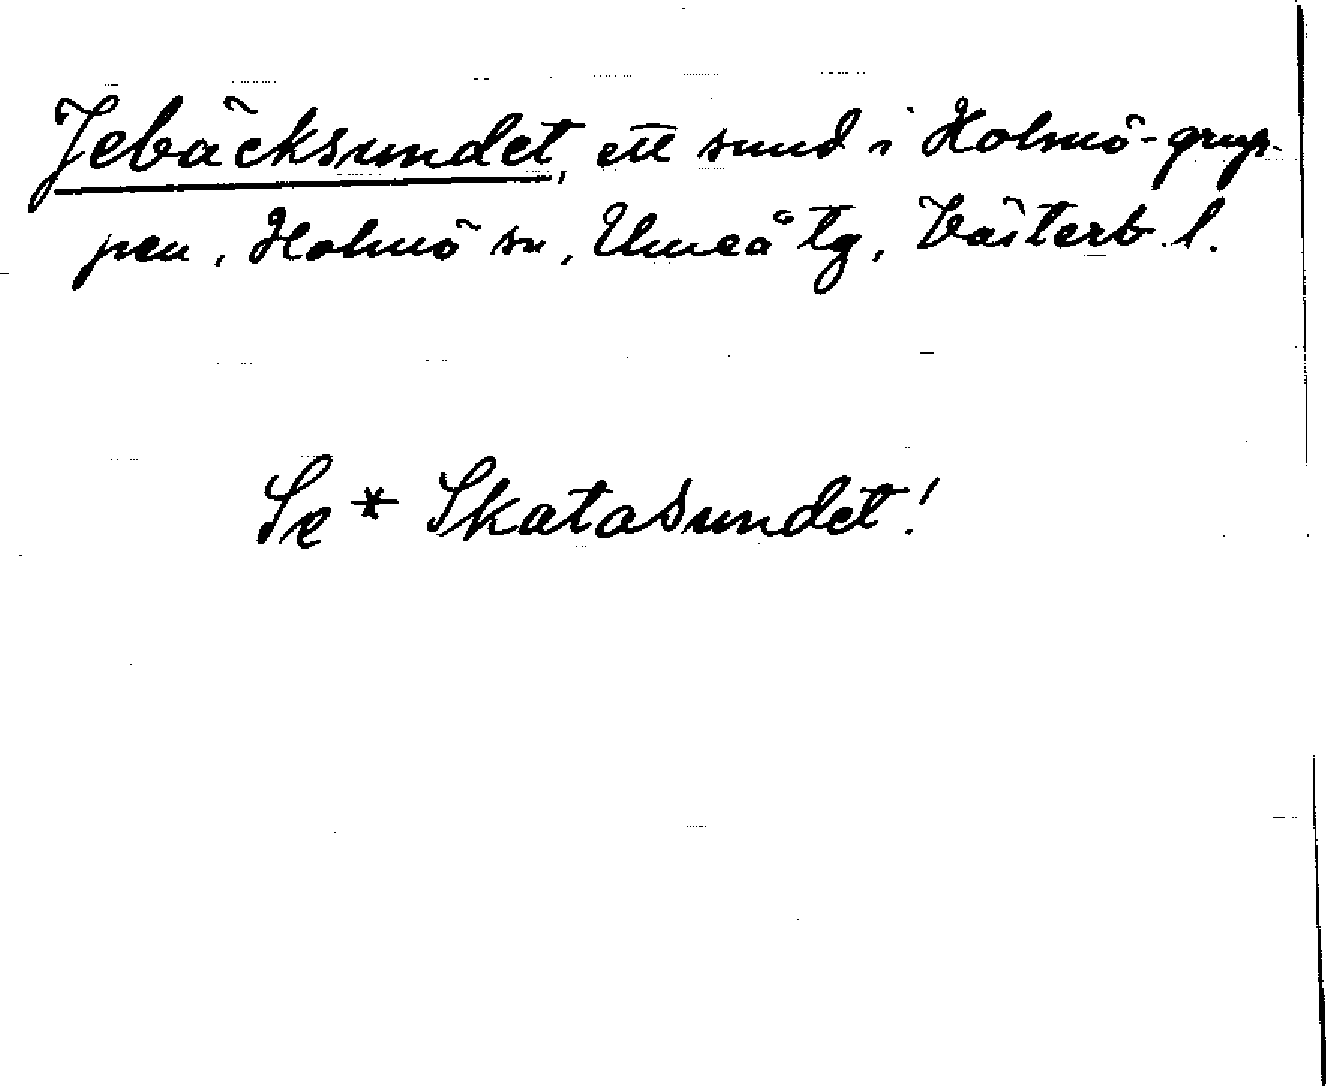 Jebäcksundet, ett sund i Holmö-grup-
pen, Holmö sn, Umeå tg, Västerb. l.
Se * Skatasundet!